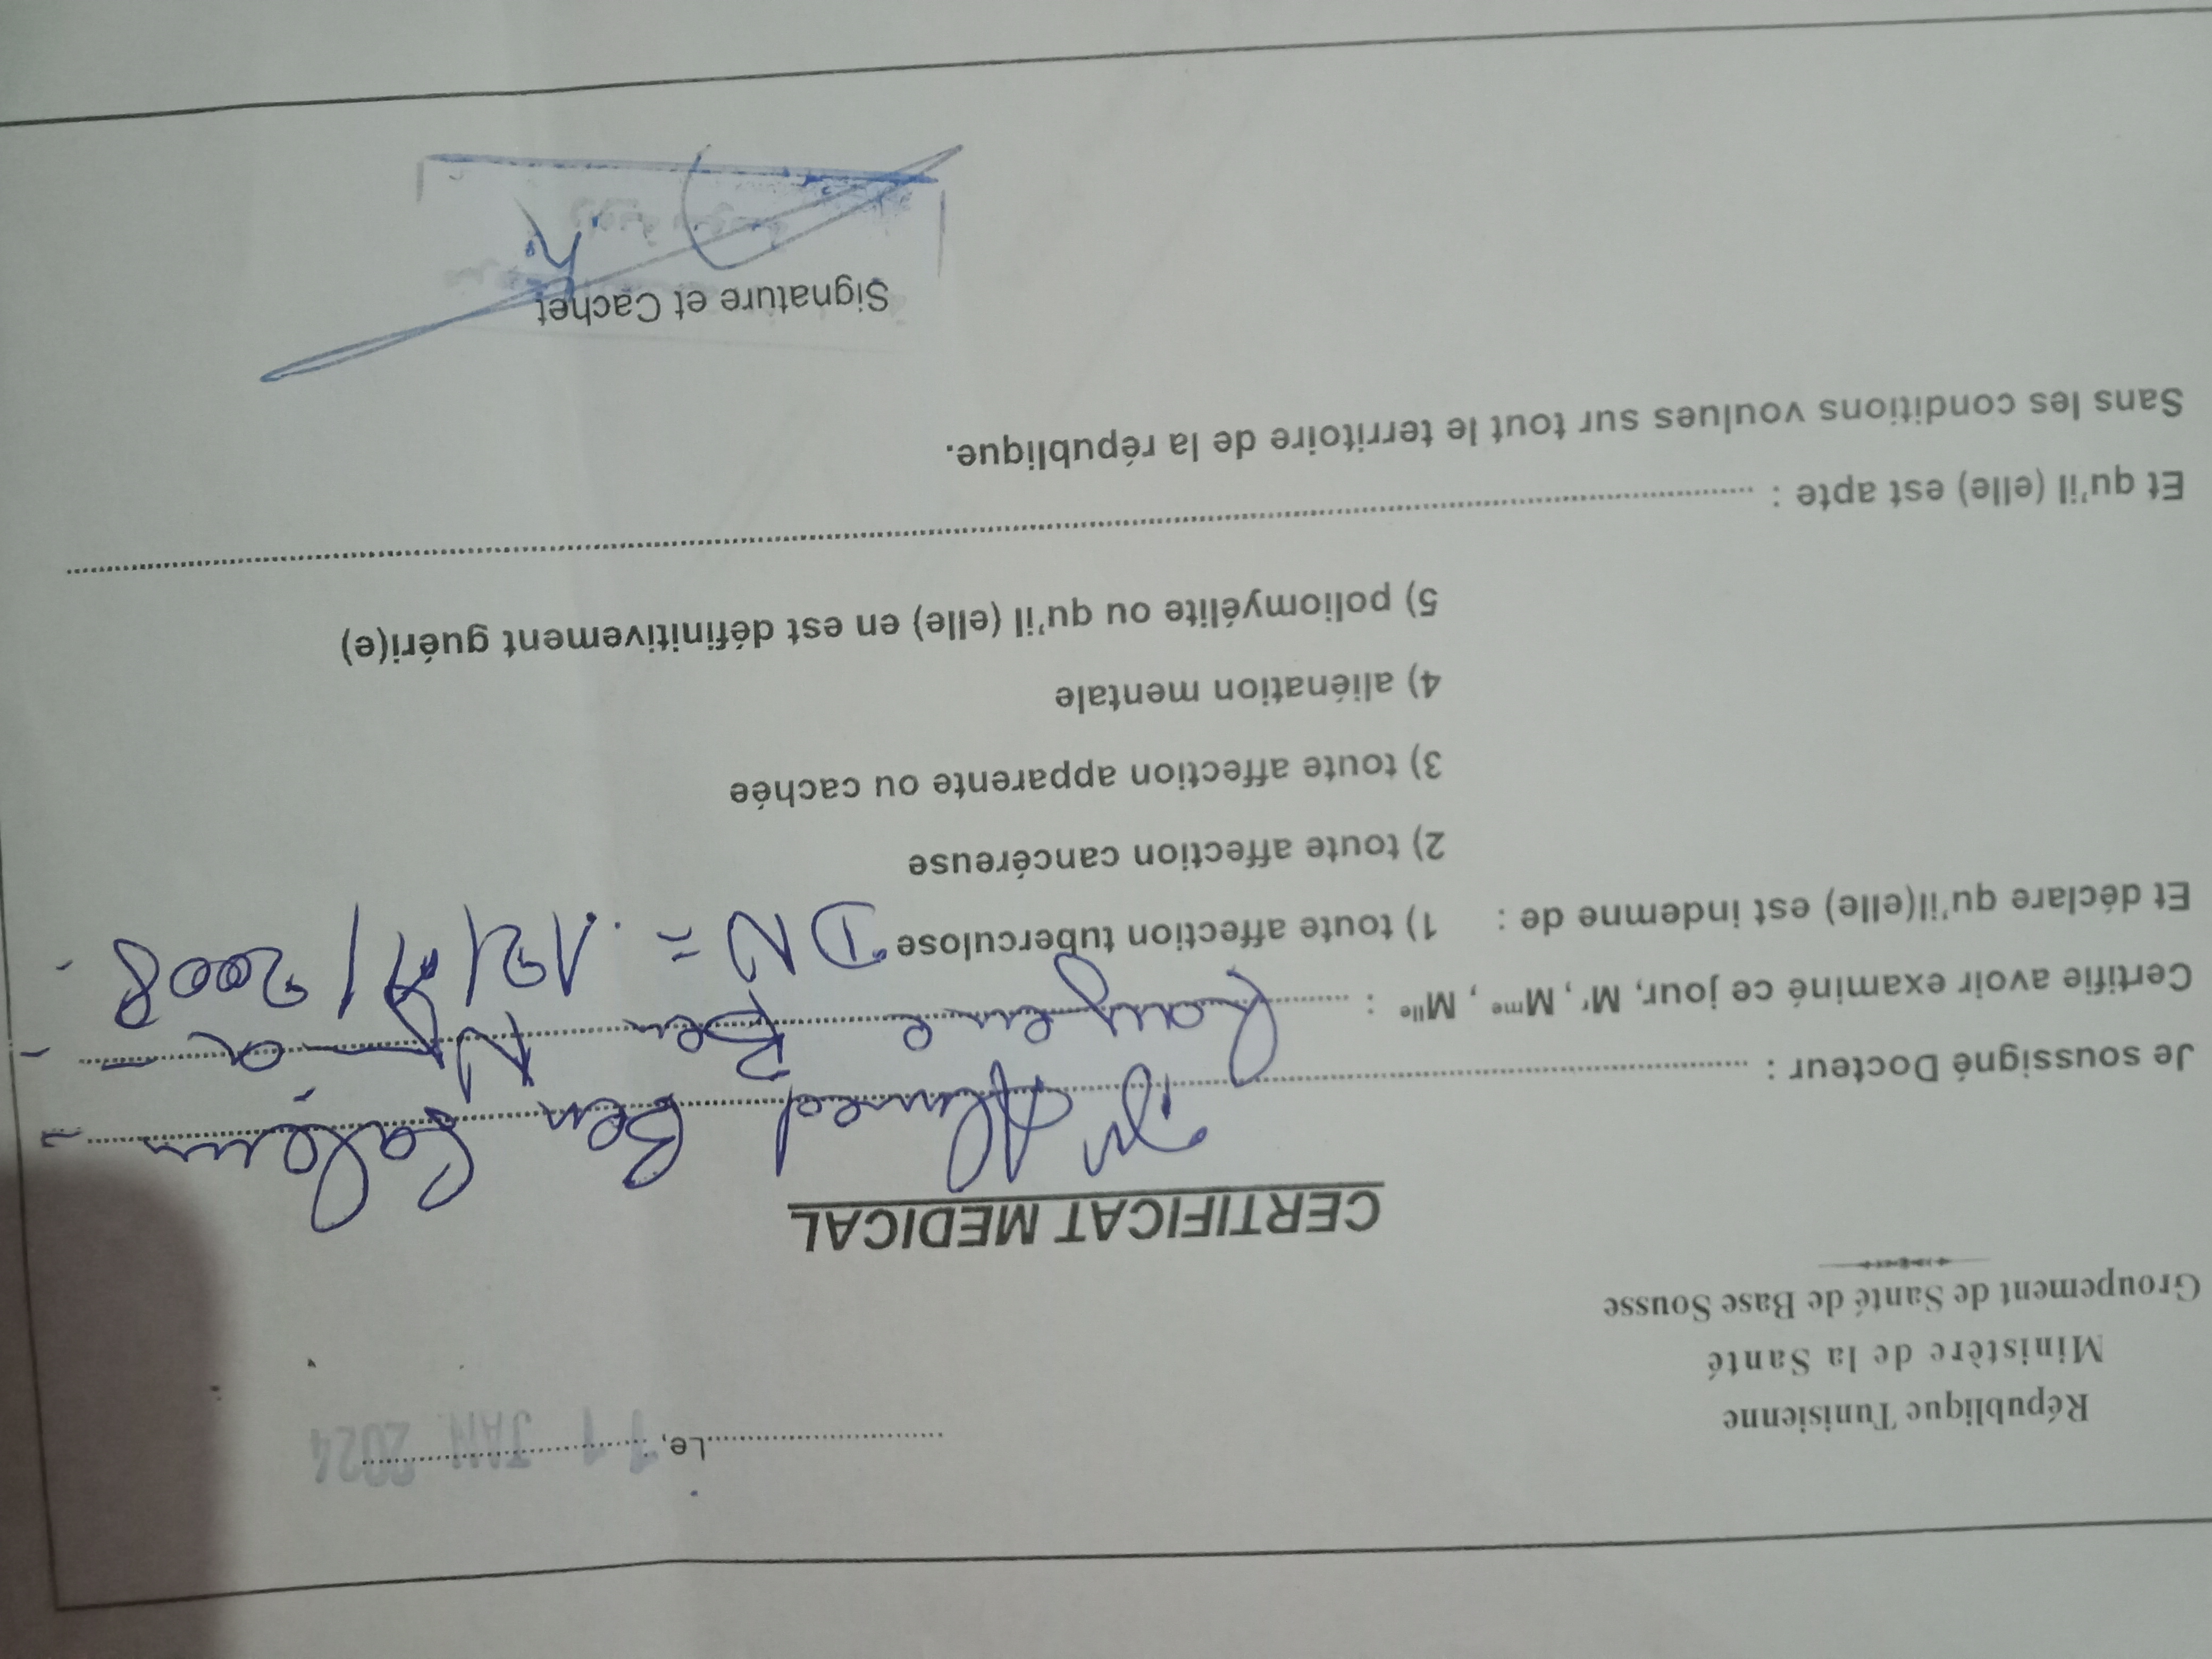 République Tunisienne
Ministère de la Santé
Groupement de Santé de Base Sousse
Le, 11 JAN. 2024
CERTIFICAT MEDICAL
Je soussigné Docteur : Dr Ahmed Ben Salem
Certifie avoir examiné ce jour, Mr, Mme, Mlle : Ben
DN = 12/ / 2008
Et déclare qu'il(elle) est indemne de : 1) toute affection tuberculose
2) toute affection cancéreuse
3) toute affection apparente ou cachée
4) aliénation mentale
5) poliomyélite ou qu'il (elle) en est définitivement guéri(e)
Et qu'il (elle) est apte :
Sans les conditions voulues sur tout le territoire de la république.
Signature et Cachet